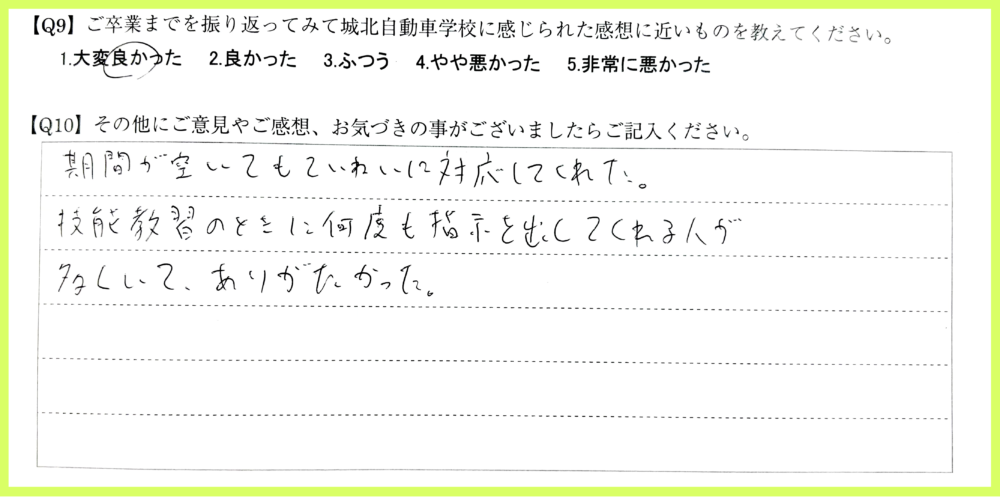 【Q9】ご卒業までを振り返ってみて城北自動車学校に感じられた感想に近いものを教えてください。
1.大変良かった 2.良かった 3.ふつう 4.やや悪かった 5.非常に悪かった
【Q10】その他にご意見やご感想、お気づきの事がございましたらご記入ください。
期間が空いてもていねいに対応してくれた。
技能教習のときに何度も指示を出してくれる人が
多くいて、ありがたかった。